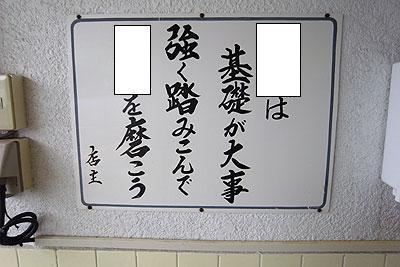 は
基礎が大事
強く踏みこんで
を磨こう
店主